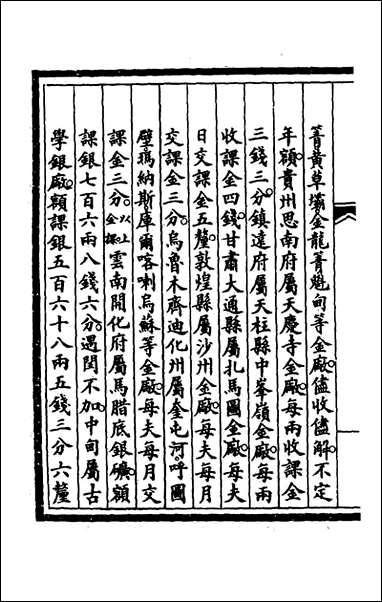 箐黃草壩金龍箐魁甸等金廠儘收儘解不定
年額貴州思南府屬天慶寺金廠每兩收課金
三錢三分鎮遠府屬天柱縣中峯嶺金廠每兩
收課金四錢甘肅大通縣屬扎馬圖金廠每夫
日交課金五釐敦煌縣屬沙州金廠每夫每月
交課金三分烏魯木齊迪化州屬金屯河呼圖
壁瑪納斯庫爾喀喇烏蘇等金廠每夫每月交
課金三分以上金課雲南開化府屬馬腊底銀礦額
課銀七百六兩八錢六分遇閏不加中甸屬古
學銀廠額課銀五百六十八兩五錢三分六釐